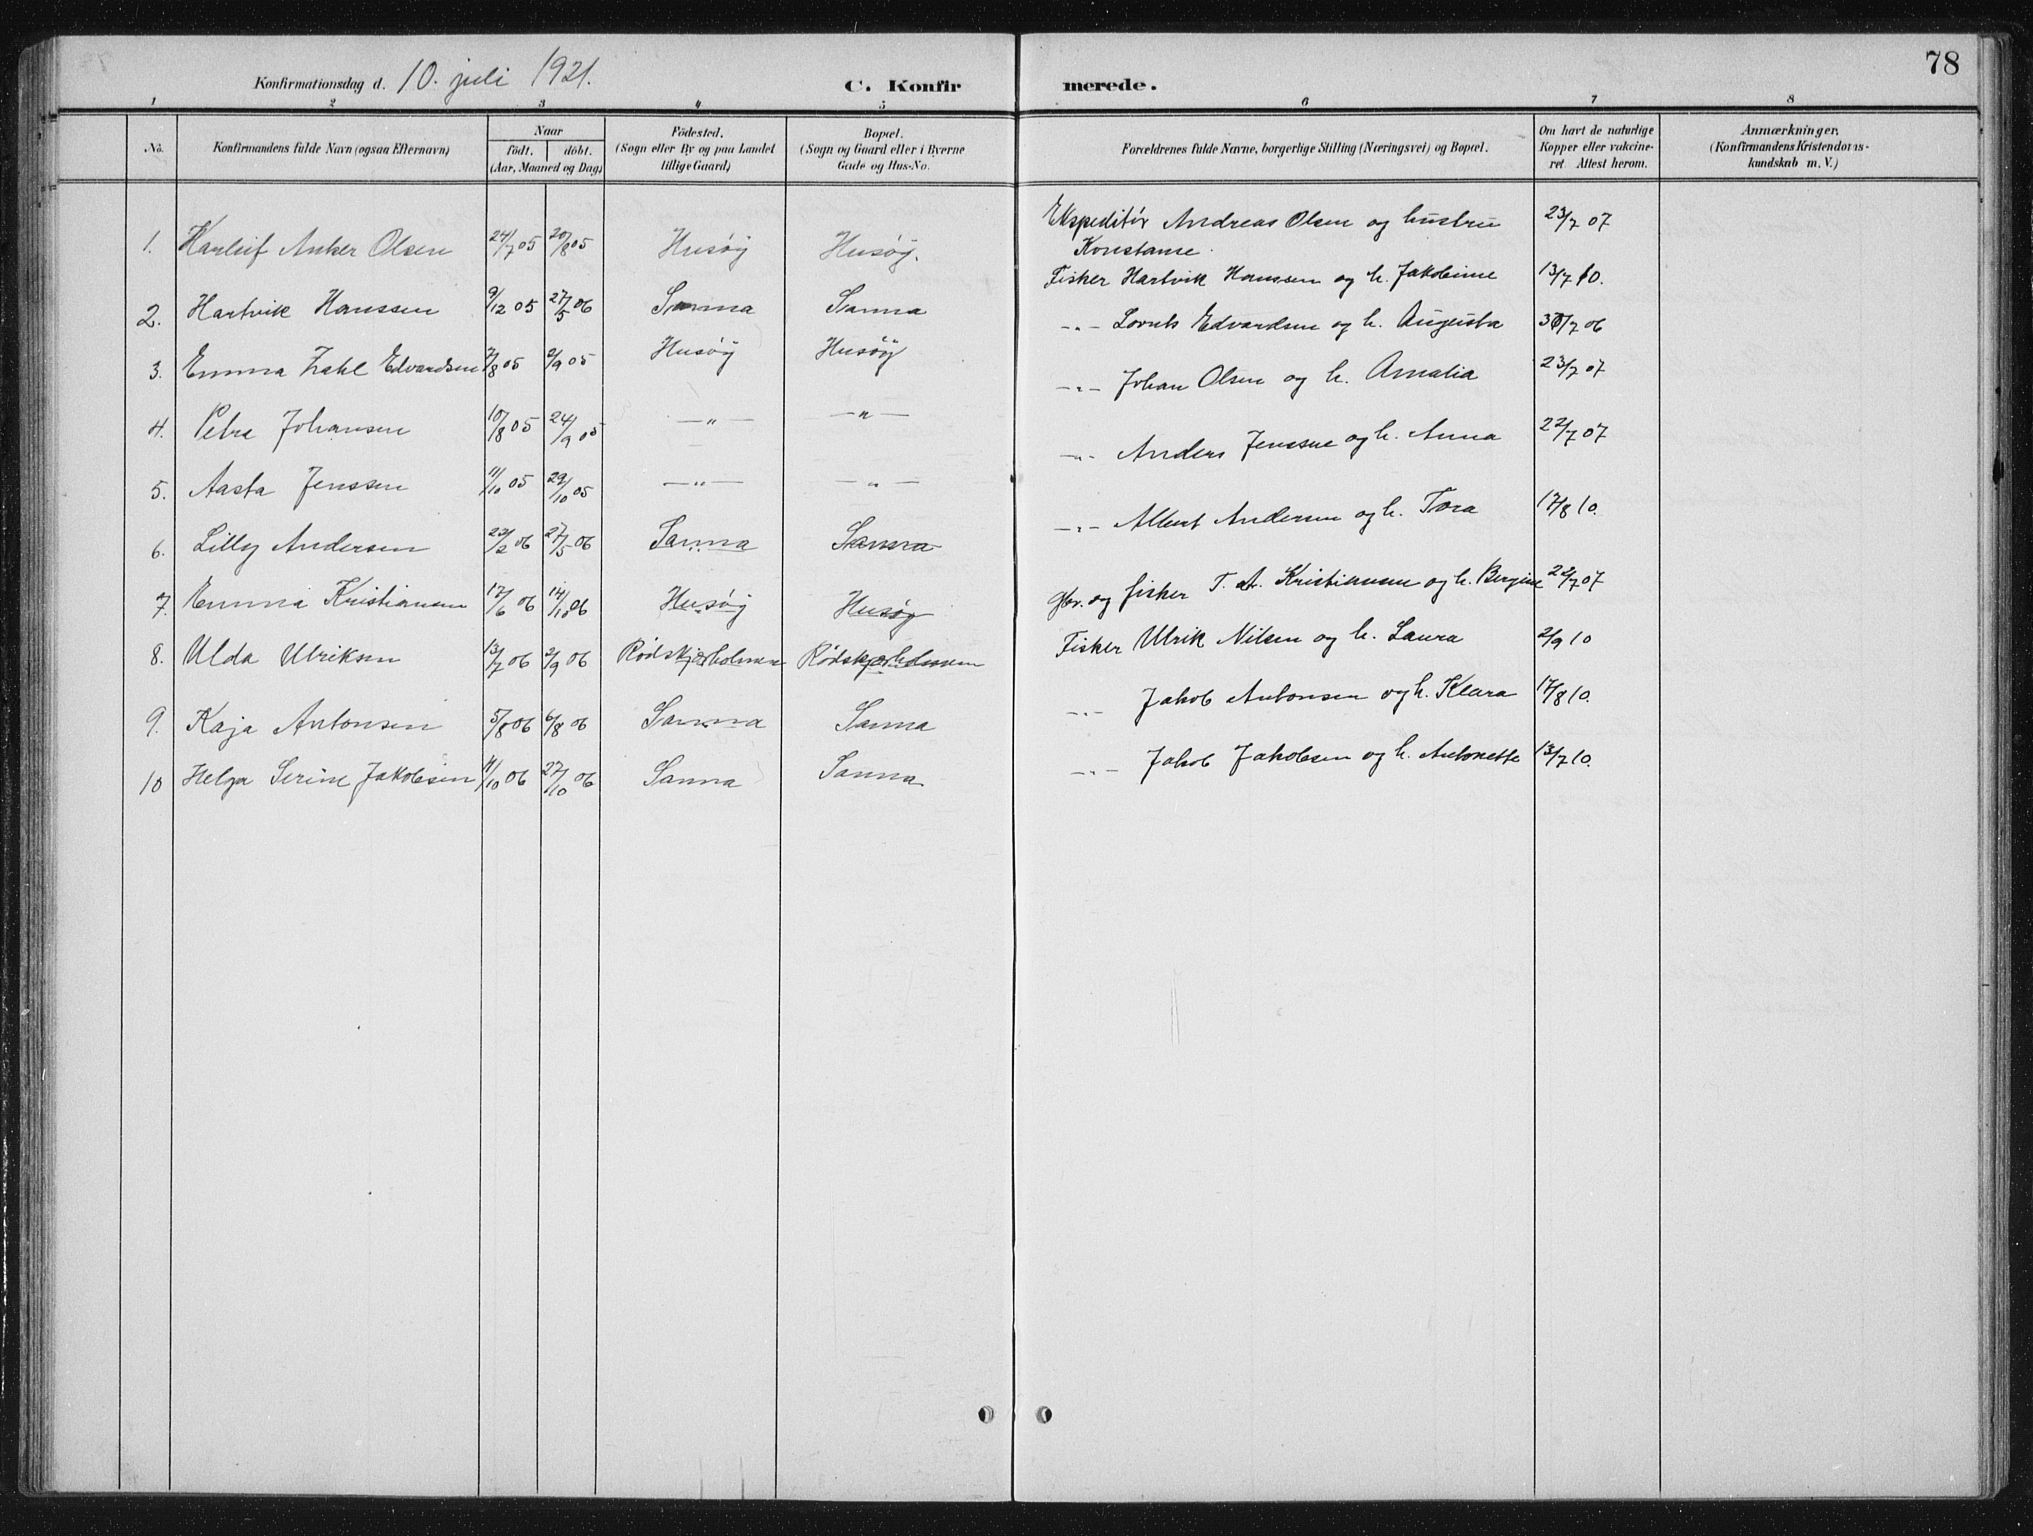 78
Konfirmationsdag d. 10. juli 1921.
C. Konfirmerede.
1 2 3 4 5 6 7 8
No.
Konfirmandens fulde Navn (ogsaa Efternavn)
Naar
födt. döbt.
(Aar, Maaned og Dag)
Födested.
(Sogn eller By og paa Landet
tillige Gaard)
Bopæl.
(Sogn og Gaard eller i Byerne
Gade og Hus-No.
Forældrenes fulde Navne, borgerlige Stilling (Næringsvei) og Bopæl.
Om havt de naturlige
Kopper eller vakcine-
ret. Attest herom.
Anmærkninger.
(Konfirmandens Kristendoms-
kundskab m. V.)
1. Harleif Anker Olsen 24/7 05 20/8 05 Husøy Husøy. Ekspeditör Andreas Olsen og hustru 23/7 07
Konstanse.
2. Hartvik Hanssen 9/12 05 27/5 06 Sanna Sanna Fisker Hartvik Hanssen og h. Jakobine 13/7 10.
3. Emma Zahl Edvardsen 7/8 05 2/9 05 Husøy Husöy -"- Edvardsen og h. Augusta 7 06
4. Petra Johansen 10/8 05 24/9 05 -"- -"- -"- Johan Olsen og h. Amalia 23/7 07
5. Aasta Jenssen 11/10 05 29/10 05 -"- -"- -"- Anders Jenssen og h. Anna 22/7 07
6. Lilly Andersen 23/2 06 27/5 06 Sanna Sanna -"- Albert Andersen og h. Tora 17/8 10.
7. Emma Kristiansen 17/6 06 14/10 06 Husøy Husøy gbr. og fisker T. A. Kristiansen og h. Bergine 22/7 07
8. Ulda Ulriksen 13/7 06 2/9 06 Rödskjærholmen Rödskjærholmen Fisker Ulrik Nilsen og h. Laura 2/9 10
9. Kaja Antonsen 5/8 06 6/8 06 Sanna Sanna -"- Jakob Antonsen og h. Klara 17/8 10.
10 Helga Serine Jakobsen 11/10 06 27/10 06 Sanna Sanna -"- Jakob Jakobsen og h. Antonette 13/7 10.